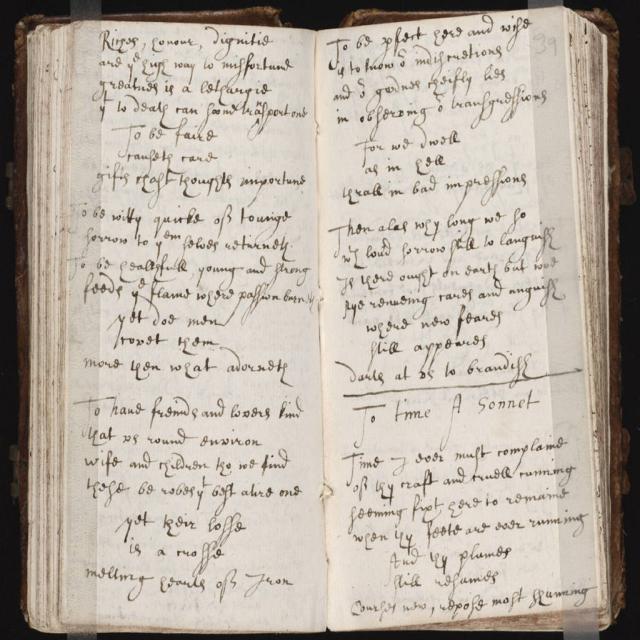 Riches, honour, dignitie
are yᵉ high way to misfortune
greatnes is a lethargie
yᵗ to death can soone transport one
To be faire
causeth care
gifts chast thoughts importune
To be witty quicke of tounge
sorrow to yᵉᵐ selves returneth
To be healthfull, young and strong
feeds yᵉ flame where passion burneth
yet doe men
covet them
more then what adorneth
To have freinds and lovers kind
that us round environ
wife and children tho we find
these be robes yᵗ best atire one
yet their losse
is a crosse
melting hearts of Iron
39
To be pfect here and wise
is to know oʳ indiscretions
and oʳ goodnes cheifly lies
in observing oʳ transgressions
for we dwell
as in hell
thrall in bad impressions
Then alas why long we so
wᵗʰ loud sorrow still to languish
Is there ought on earth but woe
Aye renewing cares and anguish
where new feares
still appeares
darts at us to brandish
To time A Sonnet
Time I ever must complaine
of thy craft and cruell cunning
seeming fixt here to remaine
when thy feete are ever running
And thy plumes
still resumes
Courses new, repose most shunning